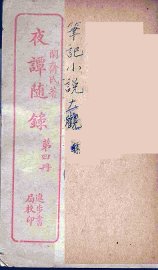 筆記小說大觀
閑齋氏著
夜譚隨錄
第四冊
進步書局校印